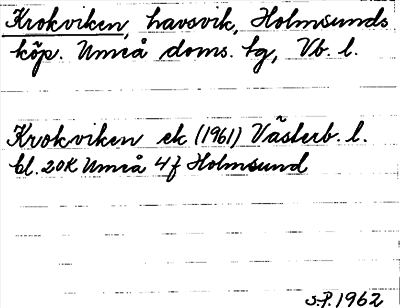 Krokviken, havsvik, Holmsunds
köp. Umeå doms. tg, Vb. l.
Krokviken ek (1961) Västerb. l.
bl. 20K Umeå 4f Holmsund
S.P. 1962